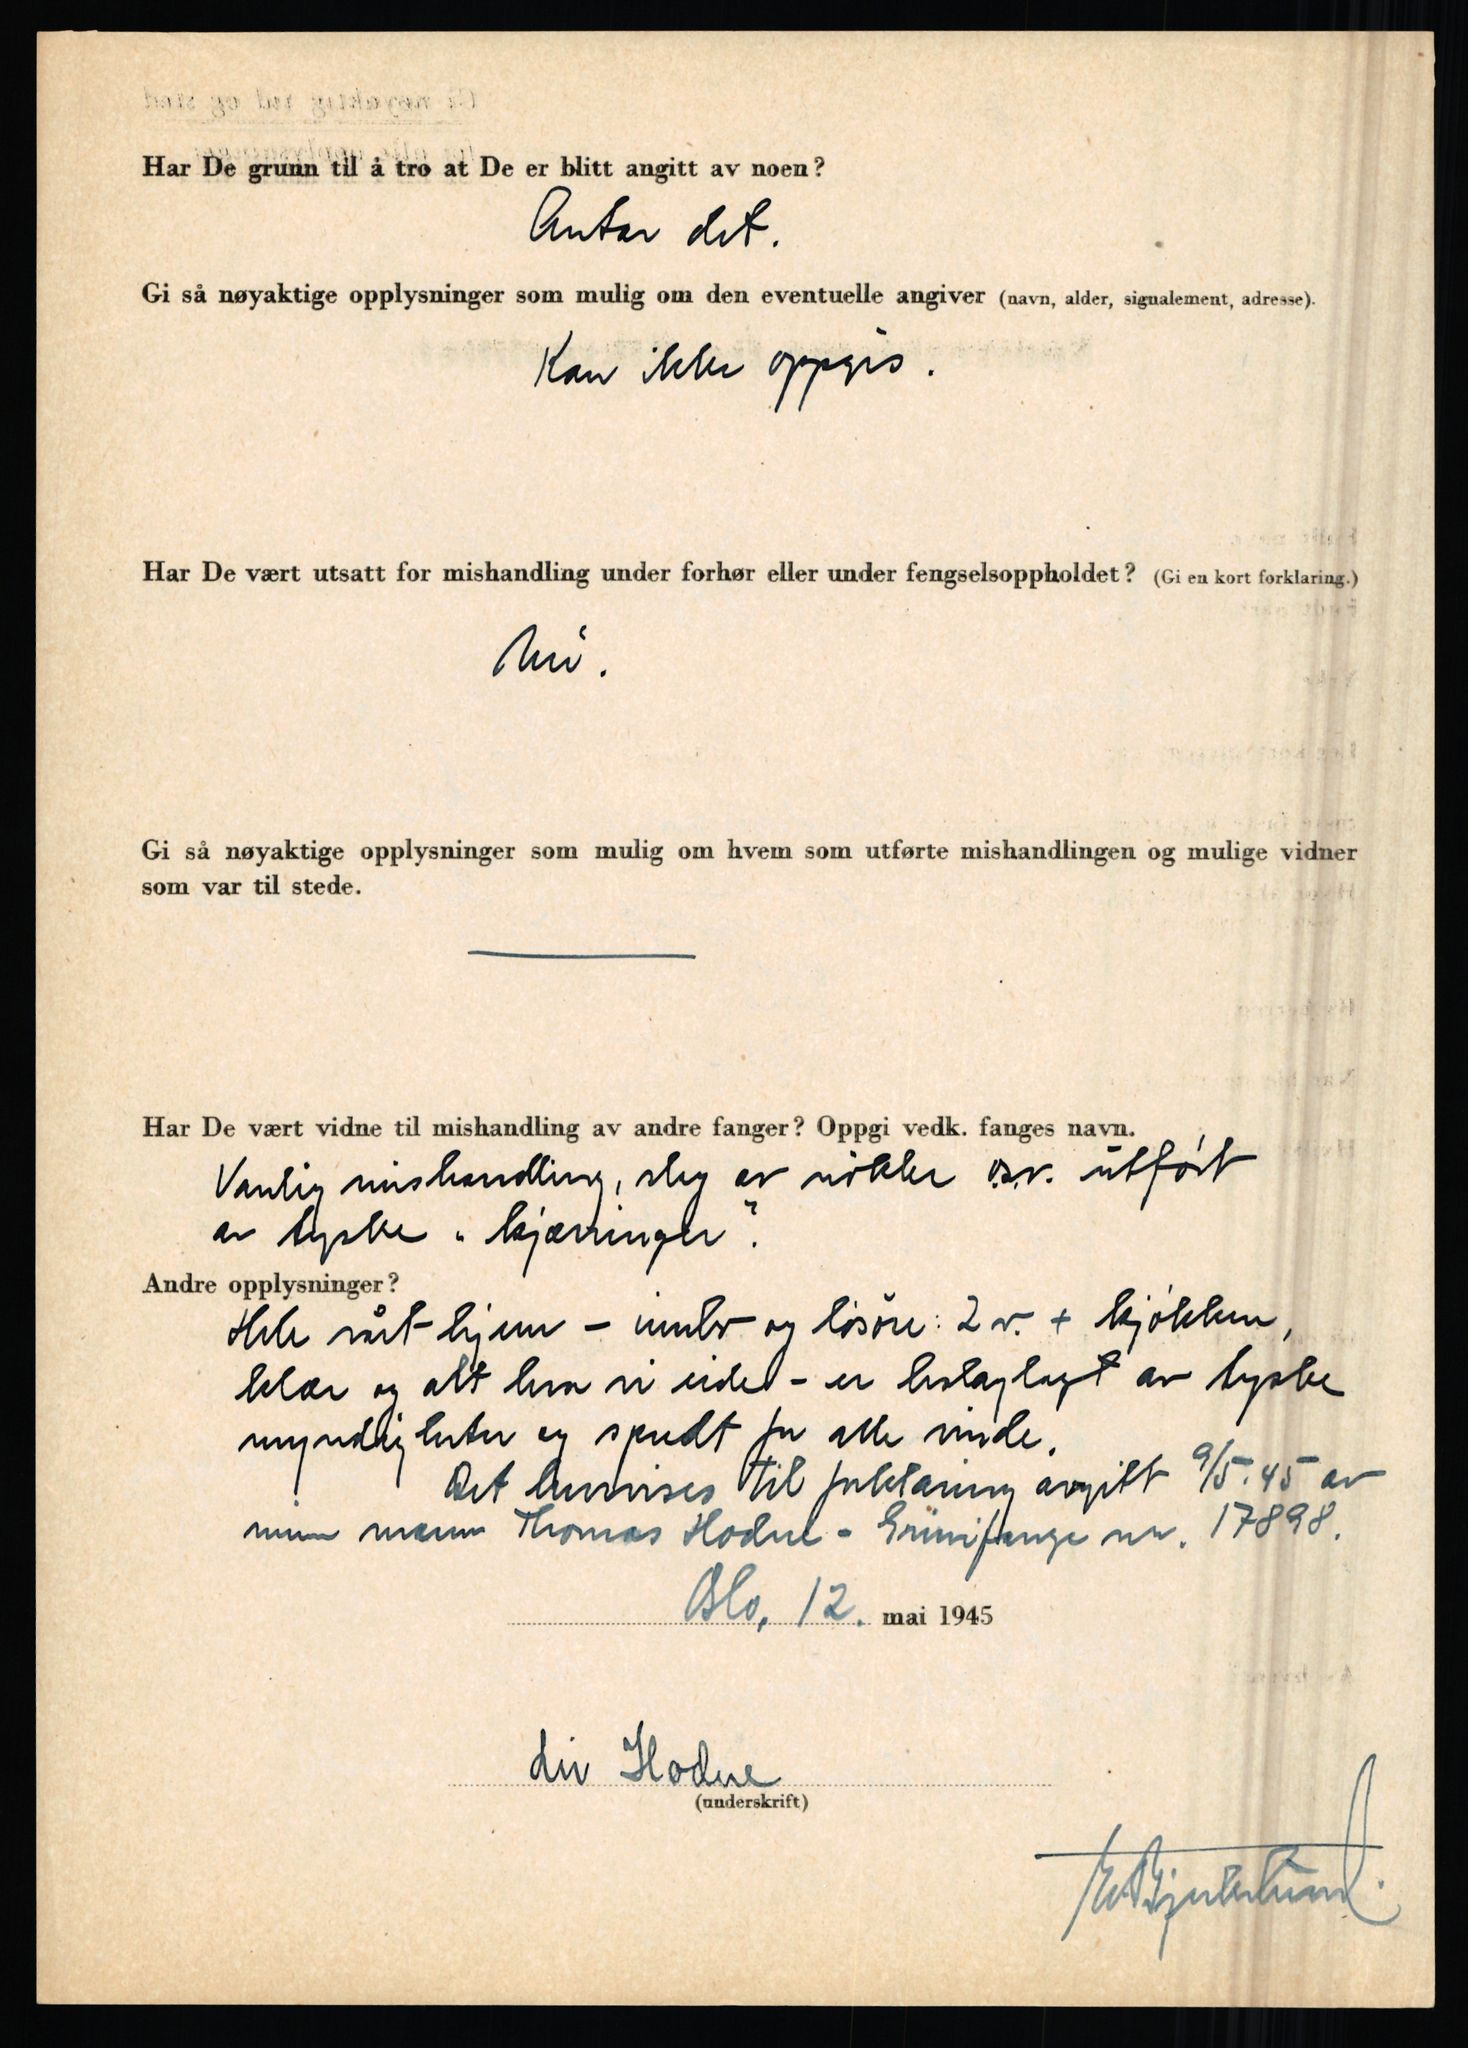 Har De grunn til å tro at De er blitt angitt av noen?
Antar det.
Gi så nøyaktige opplysninger som mulig om den eventuelle angiver (navn, alder, signalement, adresse).
Kan ikke oppgis.
Har De vært utsatt for mishandling under forhør eller under fengselsoppholdet? (Gi en kort forklaring.)
Nei.
Gi så nøyaktige opplysninger som mulig om hvem som utførte mishandlingen og mulige vidner
som var til stede.
Har De vært vidne til mishandling av andre fanger? Oppgi vedk. fanges navn.
Vanlig mishandling, slag av nökler o.s.v. utfört
av tyske "kjærringer".
Andre opplysninger?
Hele vårt hjem - innbo og lösöre: 2 v. + kjökken,
klær og alt hva vi eide - er beslaglagt av tyske
myndigheter og spredt for alle vinde.
Det henvises til forklaring avgitt 9/5.45 av
min mann Thomas Hodne - Grinifange nr. 17898.
Oslo, 12. mai 1945
Liv Hodne
(underskrift)